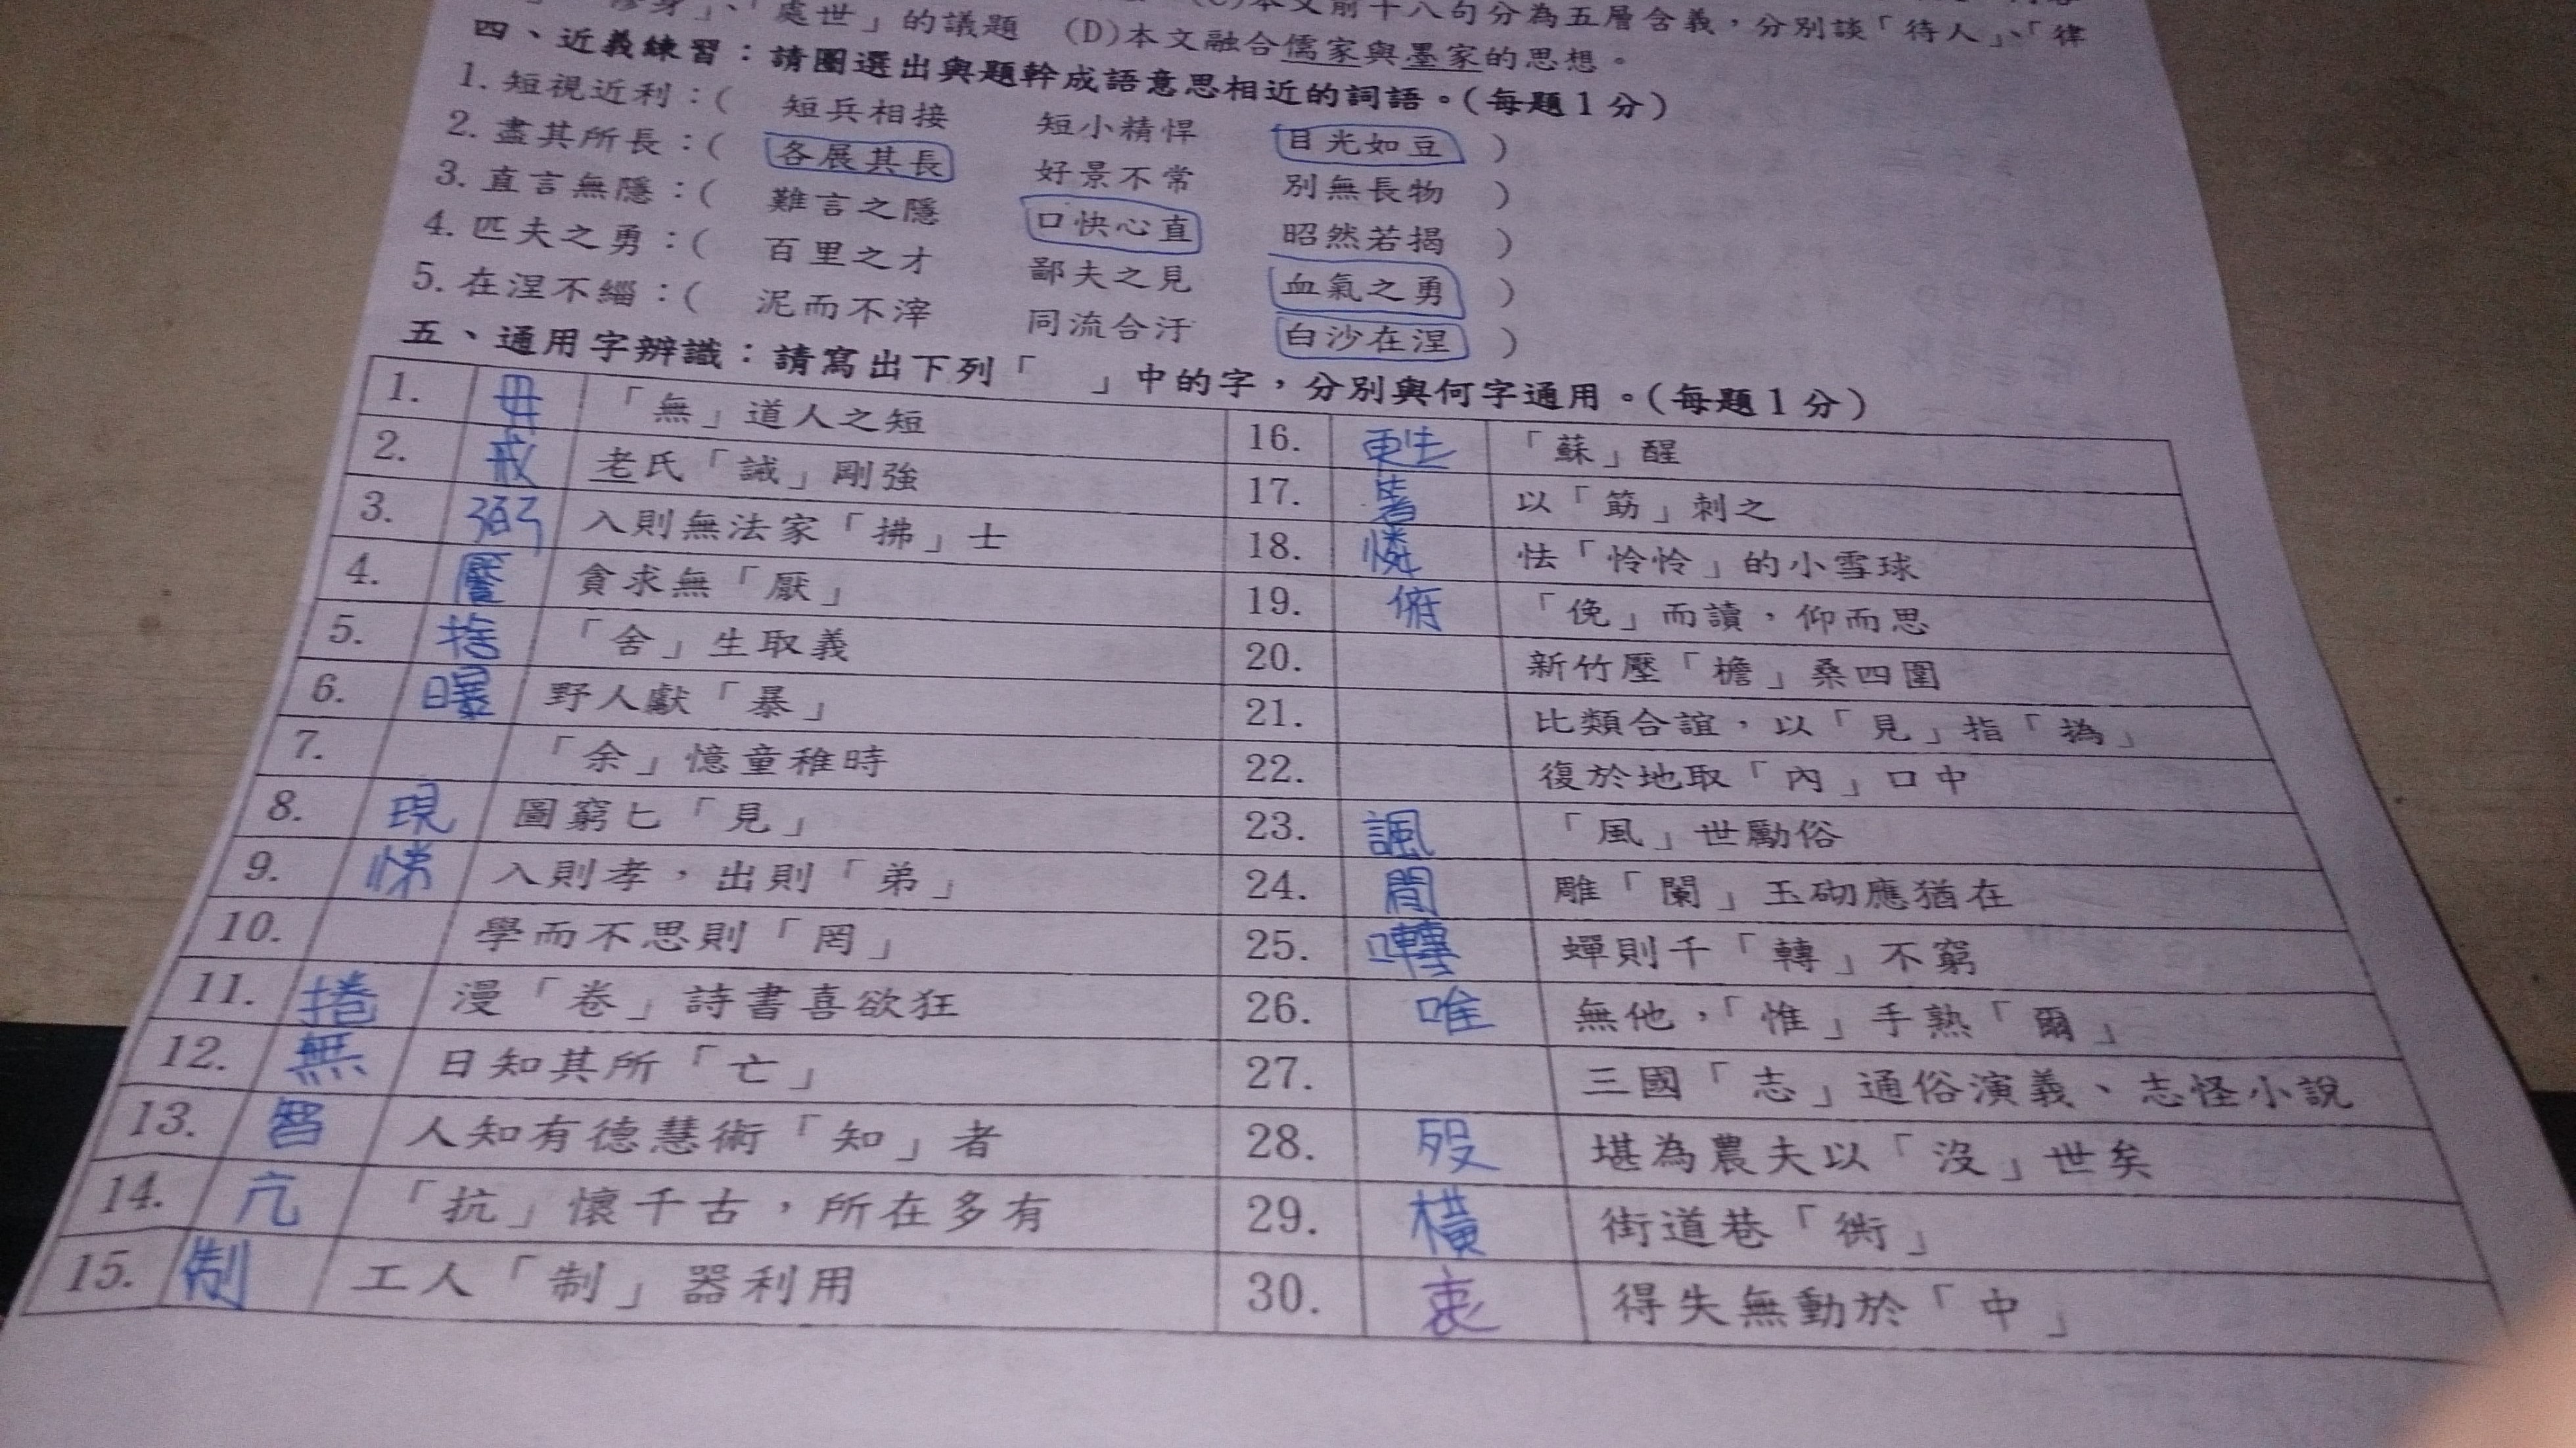 「處世」的議題 (D)本文融合儒家與墨家的思想。
(C)本文前十八句分為五層含義，分別談「待人」、「律
四、近義練習：請圈選出與題幹成語意思相近的詞語。(每題1分)
1. 短視近利：( 短兵相接 短小精悍 目光如豆 )
2. 盡其所長：( 各展其長 好景不常 別無長物 )
3. 直言無隱：( 難言之隱 口快心直 昭然若揭 )
4. 匹夫之勇：( 百里之才 鄙夫之見 血氣之勇 )
5. 在涅不緇：( 泥而不滓 同流合汙 白沙在涅 )
五、通用字辨識：請寫出下列「 」中的字，分別與何字通用。(每題1分)
1. 毋 「無」道人之短
2. 戒 老氏「誡」剛強
3. 弼 入則無法家「拂」士
4. 饜 貪求無「厭」
5. 捨 「舍」生取義
6. 曝 野人獻「暴」
7. 「余」憶童稚時
8. 現 圖窮匕「見」
9. 悌 入則孝，出則「弟」
10. 學而不思則「罔」
11. 捲 漫「卷」詩書喜欲狂
12. 無 日知其所「亡」
13. 智 人知有德慧術「知」者
14. 亢 「抗」懷千古，所在多有
15. 制 工人「制」器利用
16. 甦 「蘇」醒
17. 箸 以「筯」刺之
18. 憐 怯「怜怜」的小雪球
19. 俯 「俛」而讀，仰而思
20. 新竹壓「檐」桑四圍
21. 比類合誼，以「見」指「撝」
22. 復於地取「內」口中
23. 諷 「風」世勵俗
24. 間 雕「闌」玉砌應猶在
25. 囀 蟬則千「轉」不窮
26. 唯 無他，「惟」手熟「爾」
27. 三國「志」通俗演義、志怪小說
28. 歿 堪為農夫以「沒」世矣
29. 橫 街道巷「衖」
30. 衷 得失無動於「中」